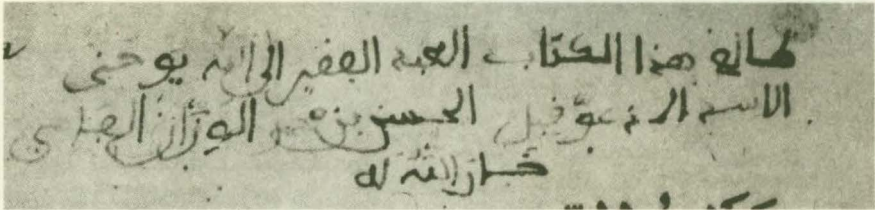 طالع هذا الكتاب العبد الفقير الى الله يوحنى
الاسد المدعوّ قبل الحسن بن محمد الوزّان الفاسي
خار الله له